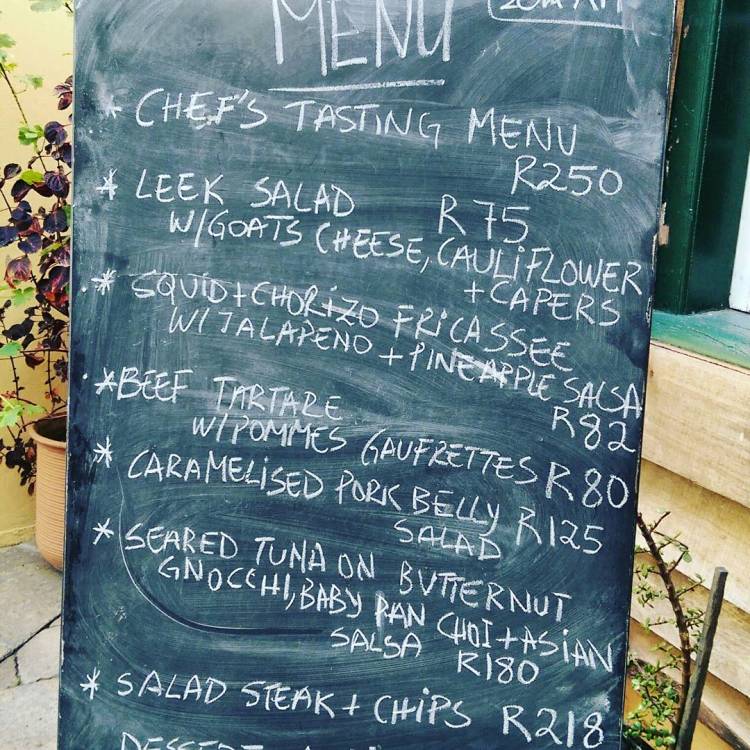 MENU
* CHEF'S TASTING MENU
R250
* LEEK SALAD R75
W/GOATS CHEESE, CAULIFLOWER
+ CAPERS
* SQUID + CHORIZO FRICASSEE
W/ JALAPENO + PINEAPPLE SALSA
R82
* BEEF TARTARE
W/POMMES GAUFRETTES R80
* CARAMELISED PORK BELLY
SALAD R125
* SEARED TUNA ON BUTTERNUT
GNOCCHI, BABY PAN CHOI + ASIAN
SALSA R180
* SALAD STEAK + CHIPS R218